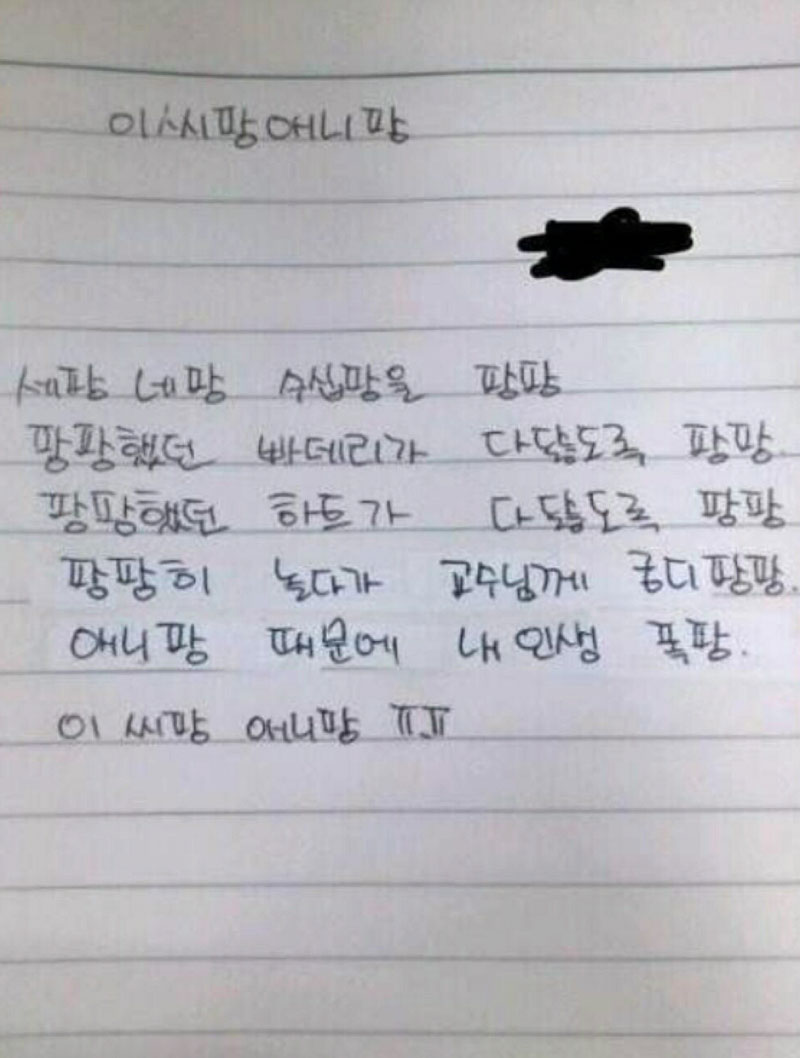 이씨팡애니팡
세팡 네팡 수십팡을 팡팡
팡팡했던 빠데리가 다닳도록 팡팡.
팡팡했던 하트가 다닳도록 팡팡
팡팡히 놀다가 교수님께 궁디팡팡.
애니팡 때문에 내 인생 폭팡.
이 씨팡 애니팡 ㅠ.ㅠ